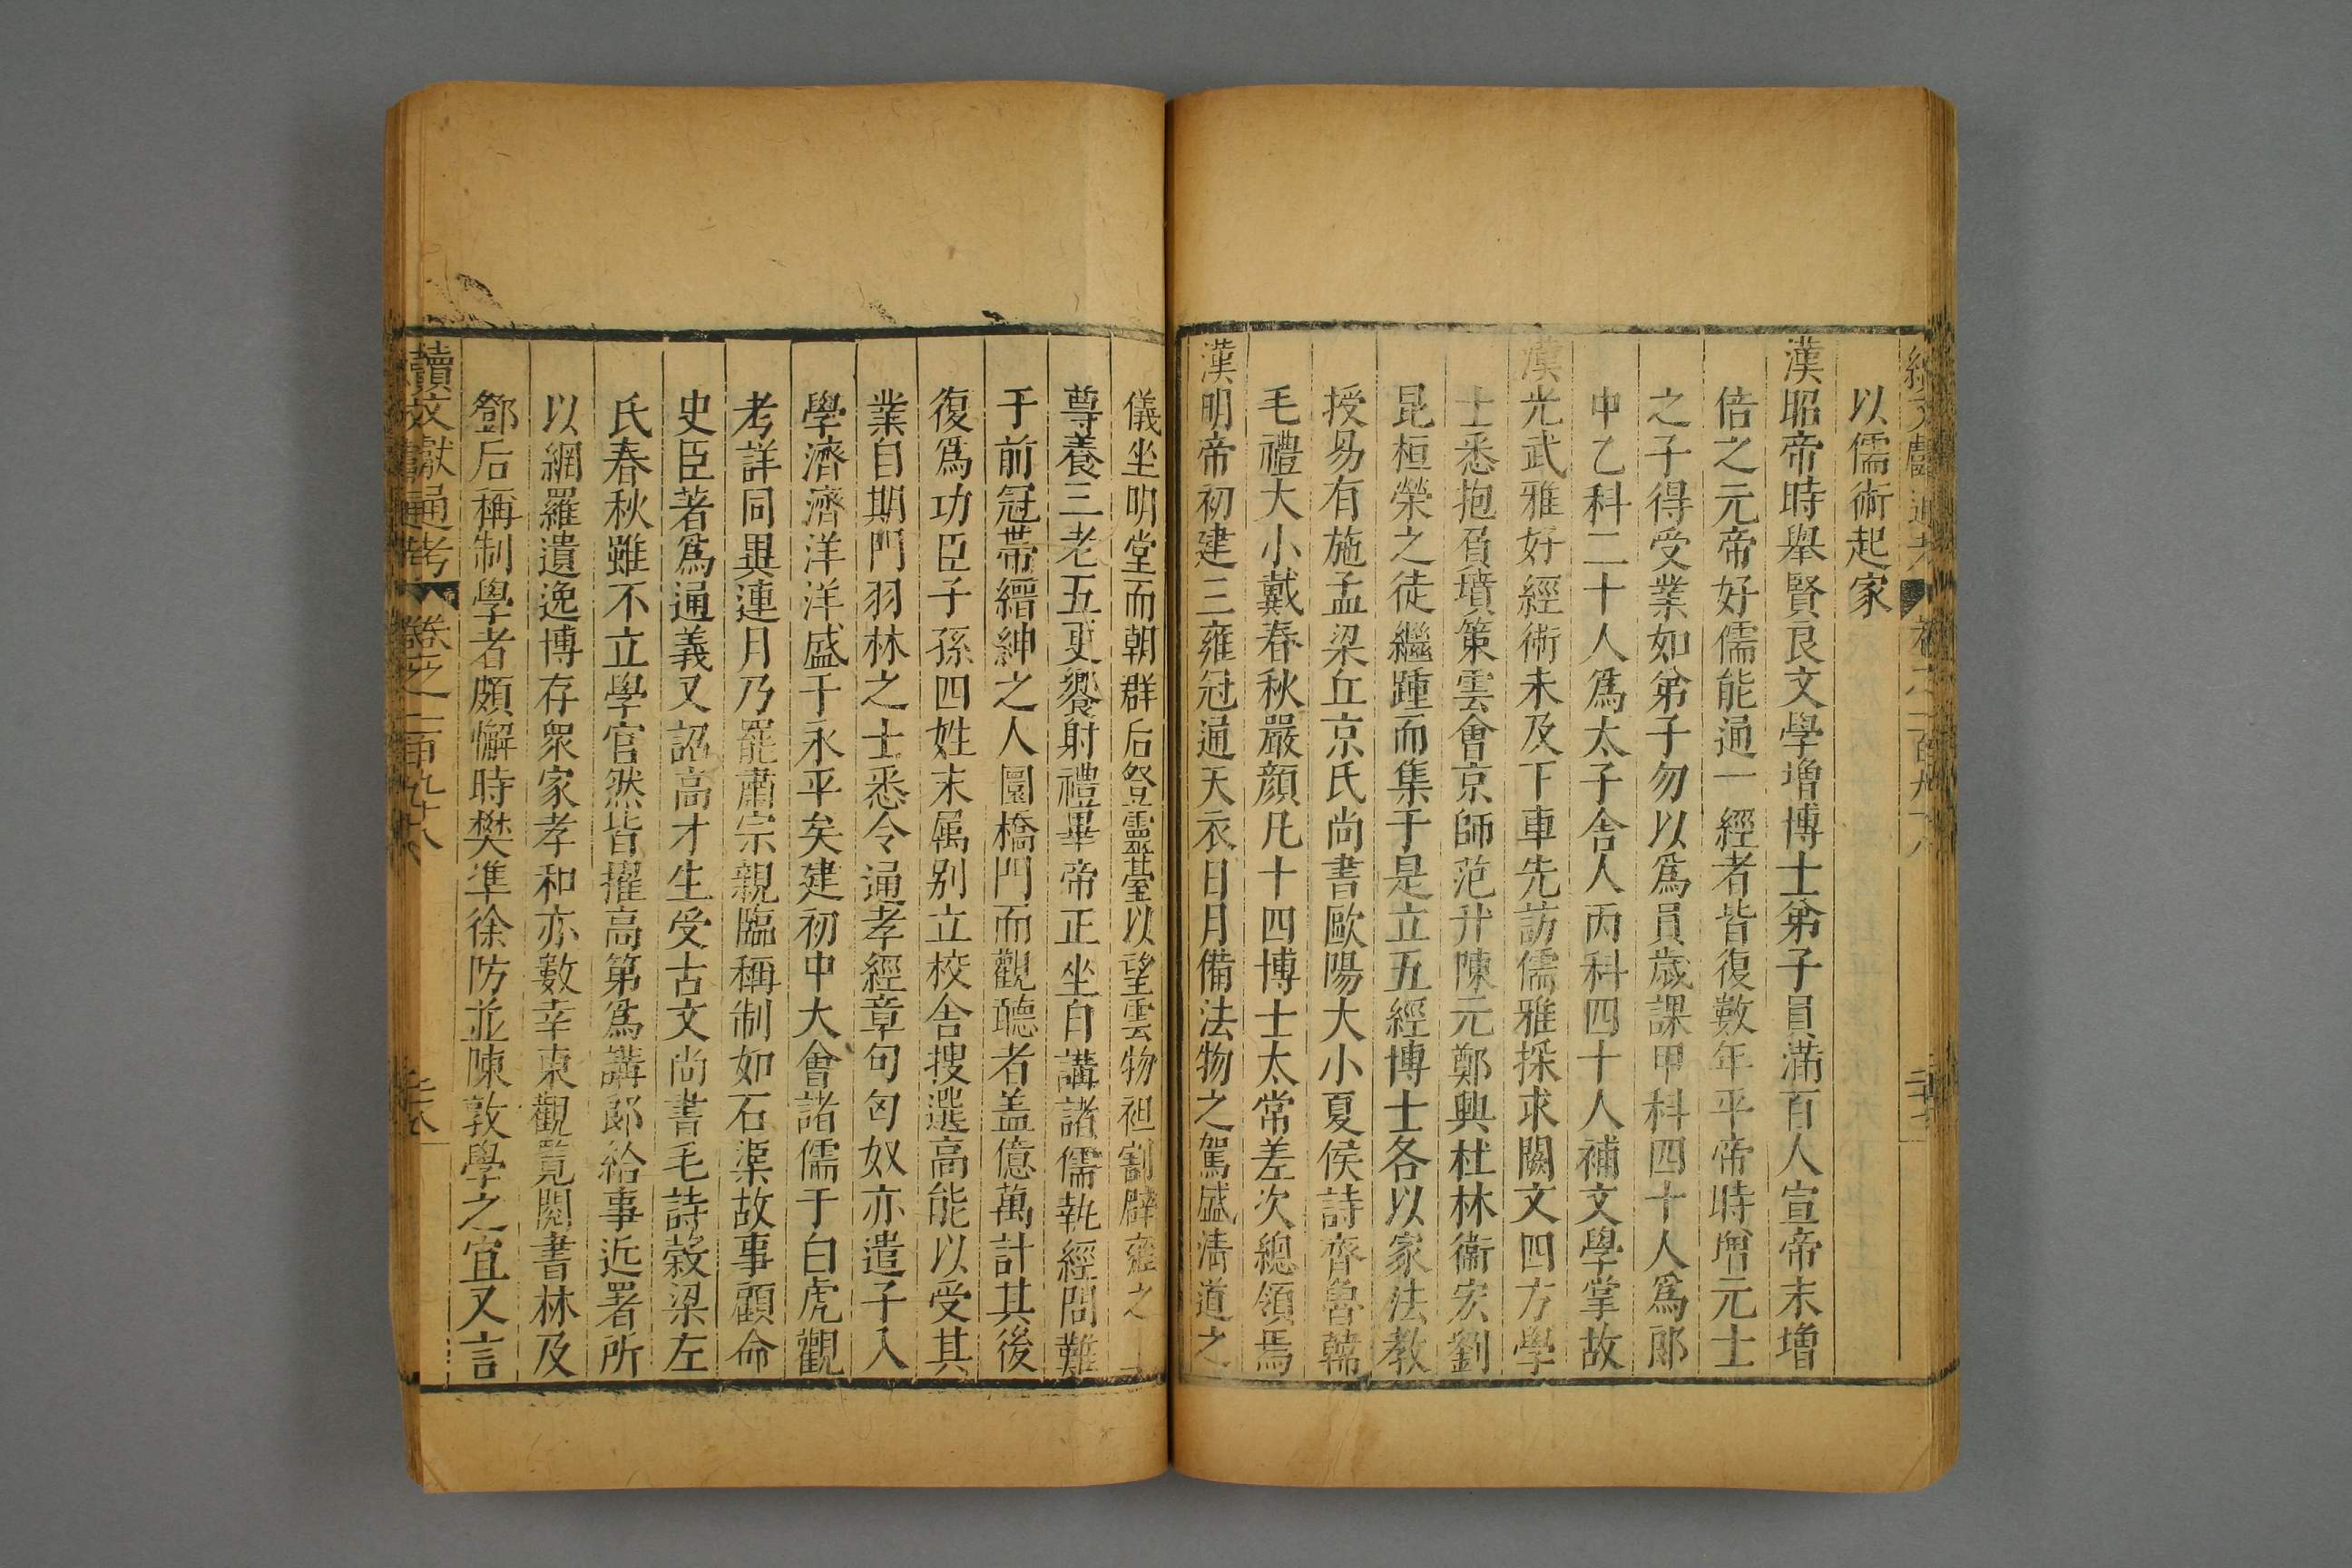 續文獻通考 卷之二百九十八
以儒術起家
漢昭帝時舉賢良文學增博士弟子員滿百人宣帝末增
倍之元帝好儒能通一經者皆復數年平帝時增元士
之子得受業如弟子勿以爲員歲課甲科四十人爲郎
中乙科二十人爲太子舍人丙科四十人補文學掌故
漢光武雅好經術未及下車先訪儒雅採求闕文四方學
士悉抱負墳策雲會京師范升陳元鄭興杜林衞宏劉
昆桓榮之徒繼踵而集于是立五經博士各以家法教
授易有施孟梁丘京氏尚書歐陽大小夏侯詩齊魯韓
毛禮大小戴春秋嚴顔凡十四博士太常差次總領焉
漢明帝初建三雍冠通天衣日月備法物之駕盛淸道之
儀坐明堂而朝群后登靈臺以望雲物袒割辟雍之上
尊養三老五更饗射禮畢帝正坐自講諸儒執經問難
于前冠帶縉紳之人圜橋門而觀聽者盖億萬計其後
復爲功臣子孫四姓末属别立校舍搜選高能以受其
業自期門羽林之士悉令通孝經章句匈奴亦遣子入
學濟濟洋洋盛于永平矣建初中大會諸儒于白虎觀
考詳同異連月乃罷肅宗親臨稱制如石渠故事顧命
史臣著爲通義又詔高才生受古文尚書毛詩穀梁左
氏春秋雖不立學官然皆擢高第爲講郎給事近署所
以網羅遺逸博存衆家孝和亦數幸東觀覽閱書林及
鄧后稱制學者頗懈時樊準徐防並陳敦學之宜又言
續文獻通考 卷之二百九十八 二十八